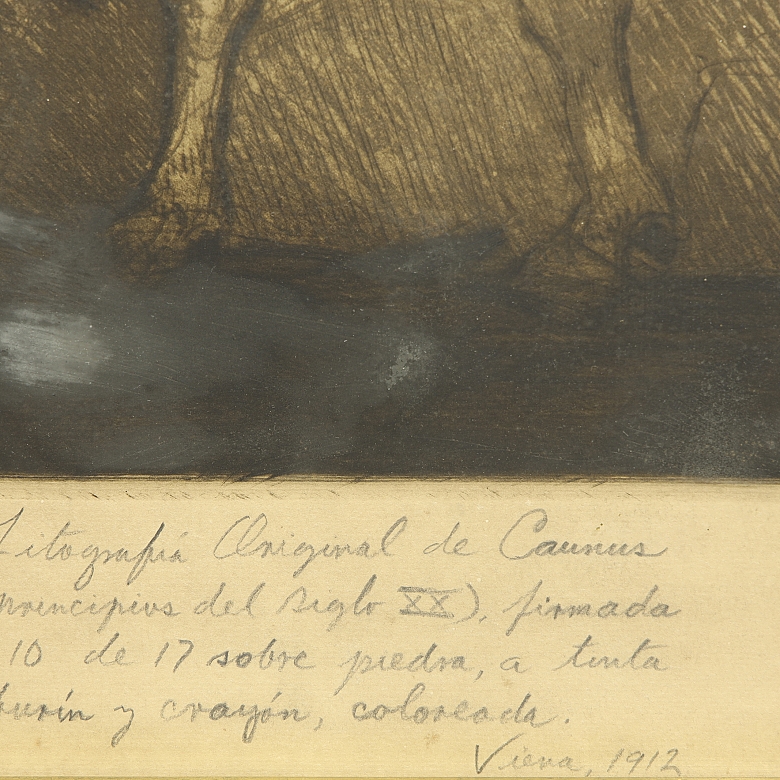 Litografía Original de Caunus
principios del siglo XX), firmada
10 de 17 sobre piedra, a tinta
burín y crayón, coloreada.
Viena, 1912